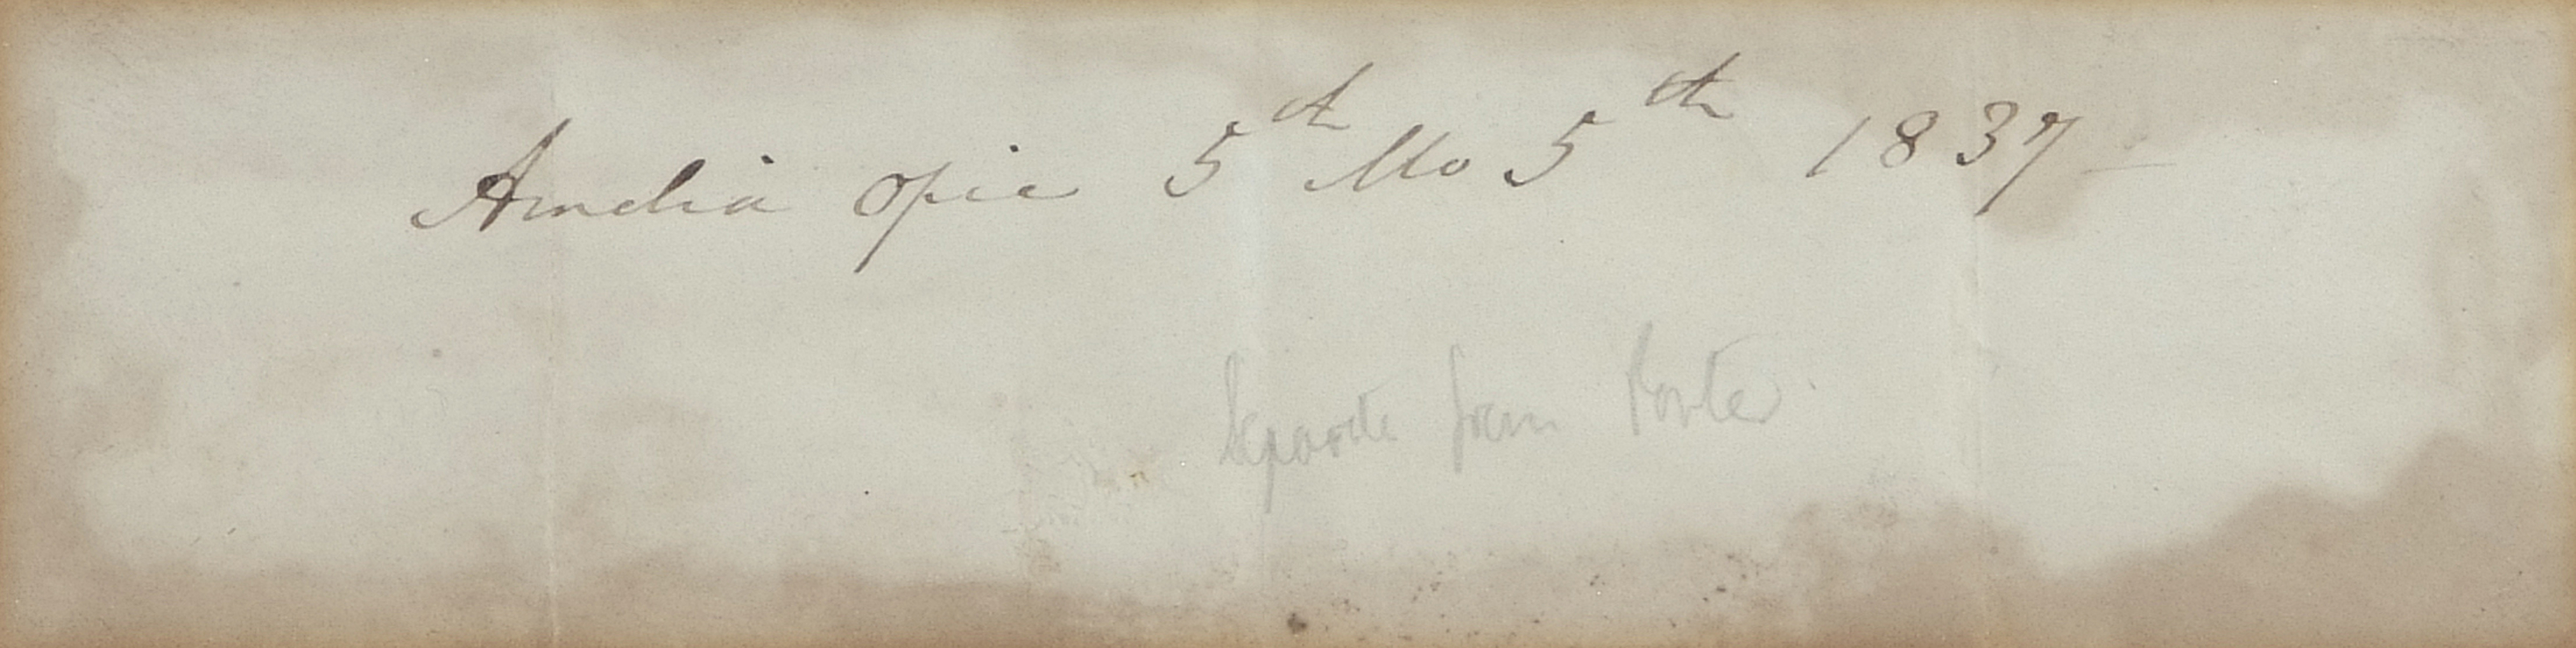 Amelia Opie 5th Mo 5th 1837 –
Separate from